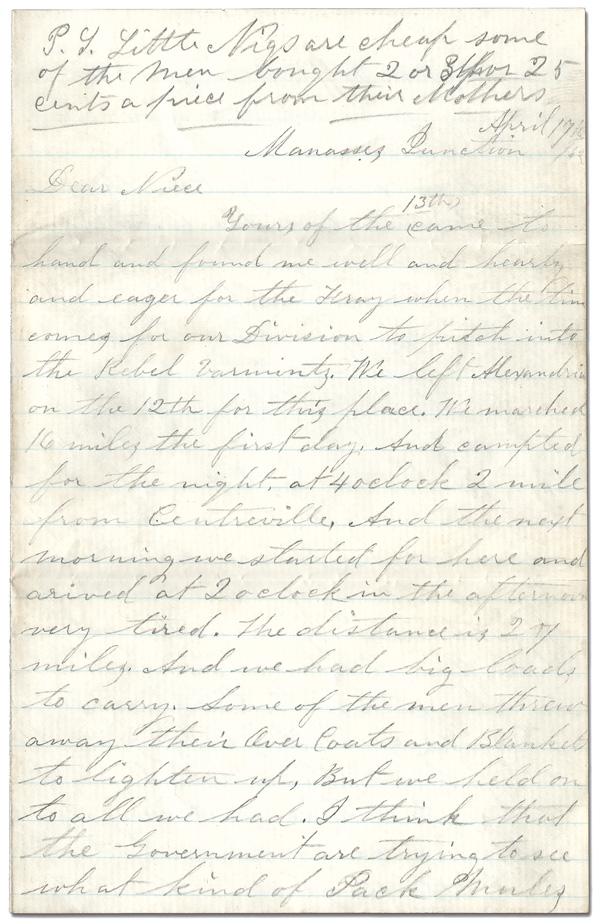 P.S. Little Nigs are cheap some
of the men bought 2 or 3 for 25
cents a piece from their Mothers
April 17th
Manassez Junction /62
Dear Niece
Yours of the 13th came to
hand and found me well and hearty
and eager for the Fray when the time
comes for our Division to pitch into
the Rebel Varmintz. We left Alexandria
on the 12th for this place. We marched
16 miles the first day. And campted
for the night, at 4 oclock 2 mile
from Centreville, And the next
morning we started for here and
arived at 2 oclock in the afternoon
very tired. The distance is 27
miles. And we had big loads
to carry. Some of the men threw
away their Over Coats and Blankets
to lighten up, But we held on
to all we had. I think that
the Government are trying to see
what kind of Pack Mules